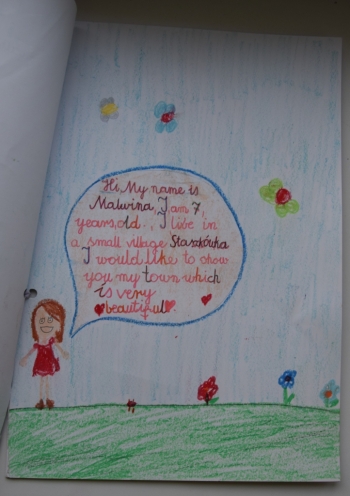 Hi, My name is
Malwina, I am 7,
years, old., I live in
a small village Staszkówka
I would like to show
you my town which
is very
beautiful